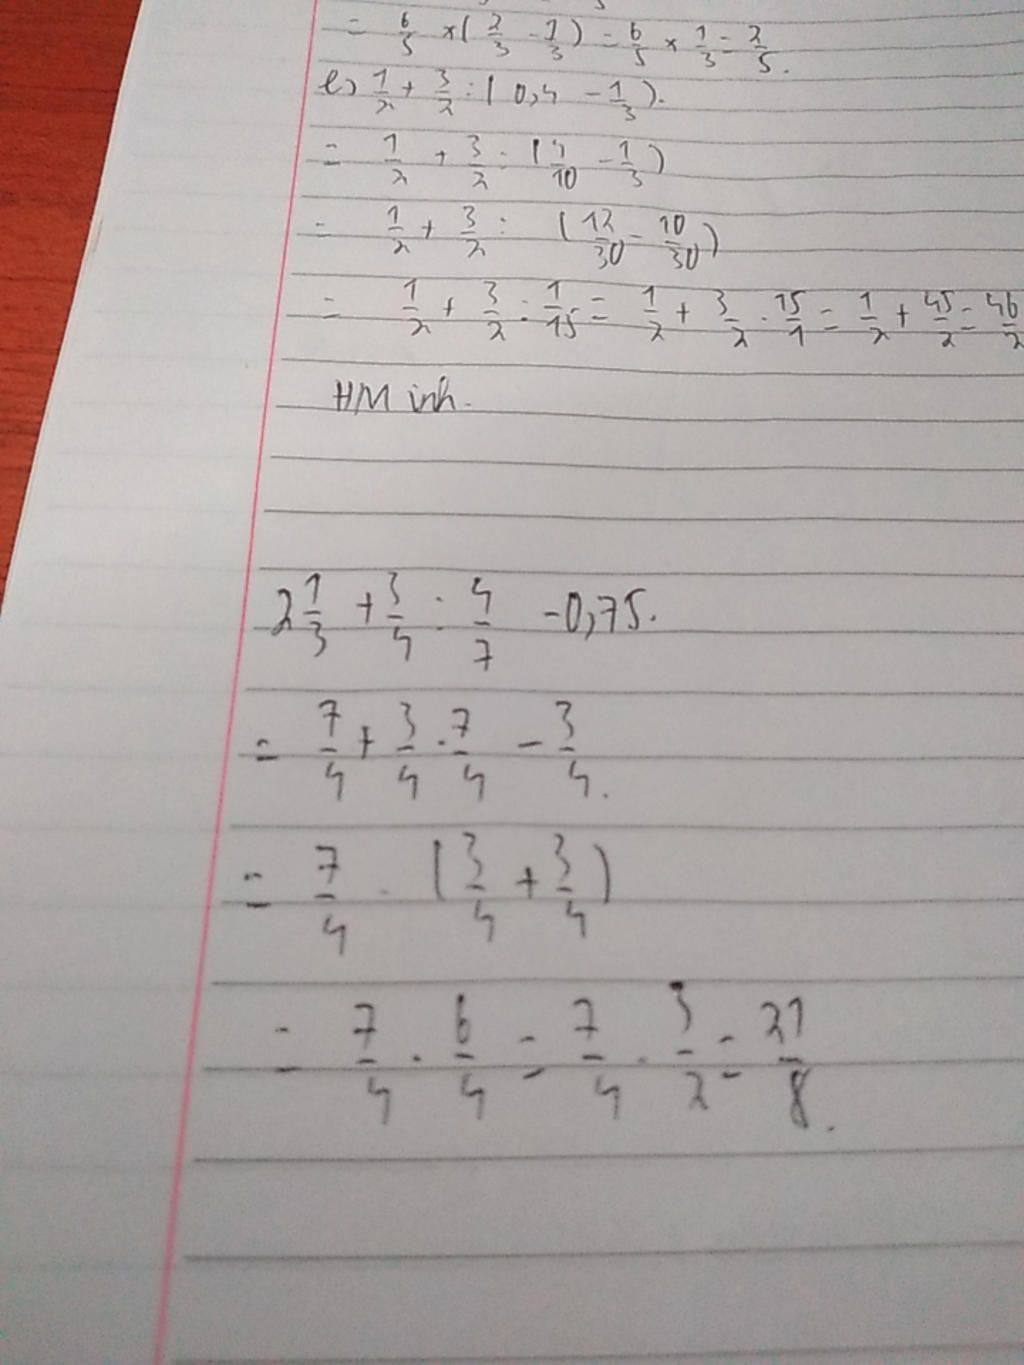 = 6/5 × ( 2/3 - 1/3 ) = 6/5 × 1/3 = 2/5.
e) 1/2 + 3/2 : ( 0,4 - 1/3 ).
= 1/2 + 3/2 : ( 4/10 - 1/3 )
= 1/2 + 3/2 : ( 12/30 - 10/30 )
= 1/2 + 3/2 : 1/15 = 1/2 + 3/2 . 15/1 = 1/2 + 45/2 = 46/2
2 1/3 + 3/4 : 4/7 - 0,75.
= 7/4 + 3/4 . 7/4 - 3/4.
= 7/4 . ( 3/4 + 3/4 )
= 7/4 . 6/4 = 7/4 . 3/2 = 21/8.